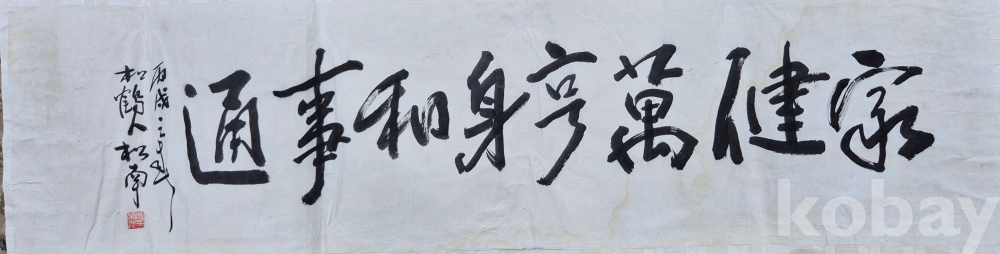 家健萬亨身和事通
丙戌
松鶴人 松南
kobay